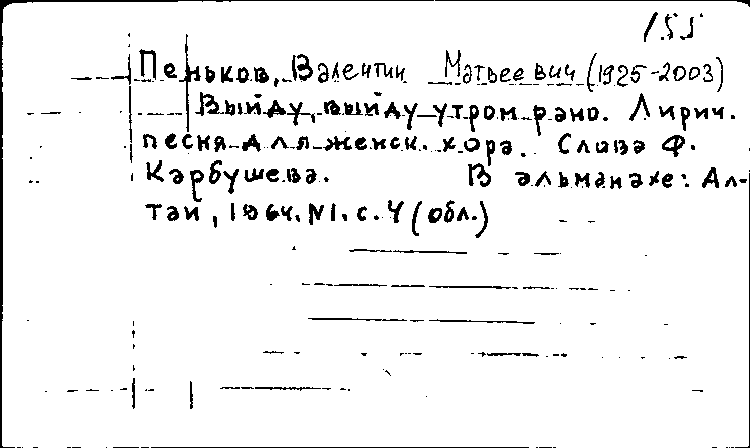 155
Пеньков, Валентин Матвеевич (1925-2003)
Выйду, выйду утром рано. Лирич.
песня для женск. хора. Слова Ф.
Карбушева. В альманахе: Ал-
тай, 1964. N1. с. 4 (обл.)